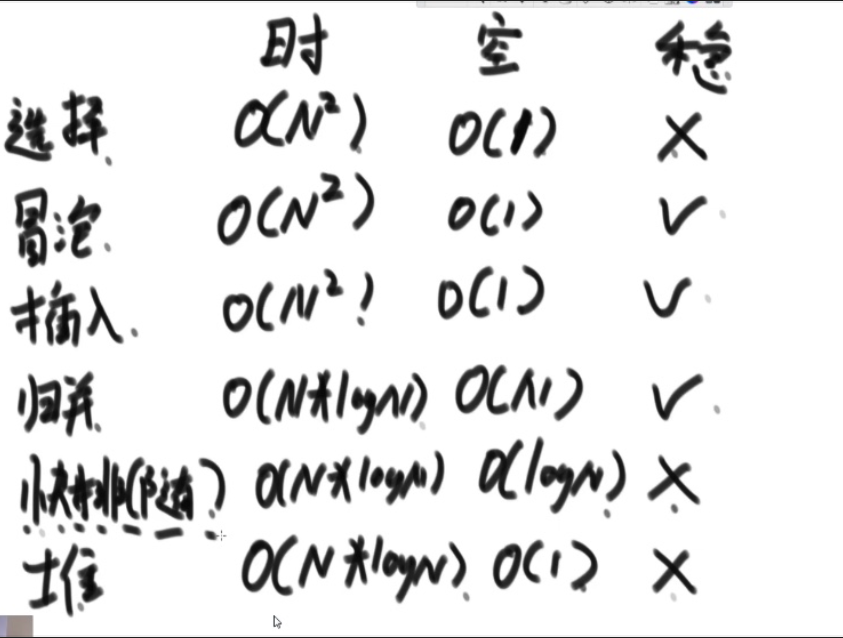 时 空 稳
选择 O(N²) O(1) ×
冒泡 O(N²) O(1) ✓
插入 O(N²) O(1) ✓
归并 O(N*logN) O(N) ✓
快排(随) O(N*logN) O(logN) ×
堆 O(N*logN) O(1) ×